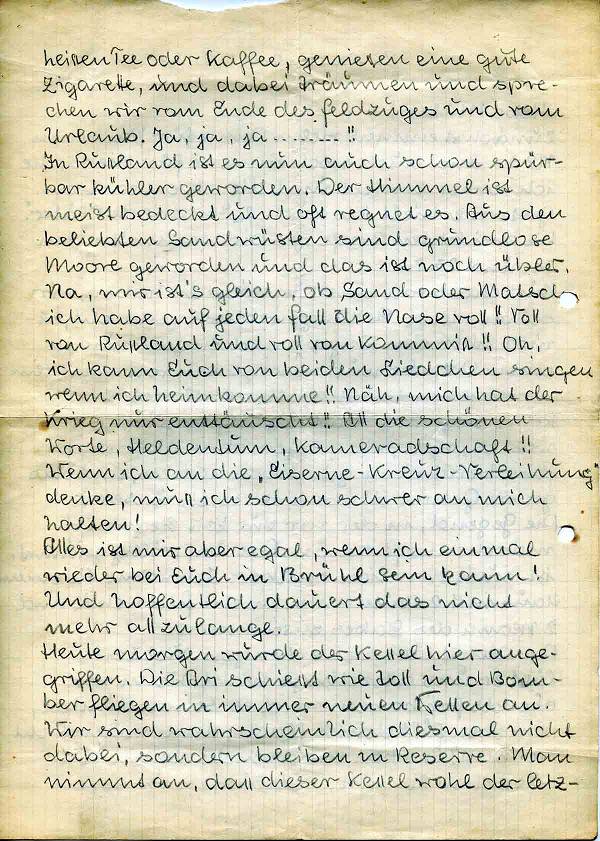 heißen Tee oder Kaffee, genießen eine gute
Zigarette, und dabei träumen und spre-
chen wir vom Ende des Feldzuges und vom
Urlaub. Ja, ja, ja ........ !!
In Rußland ist es nun auch schon spür-
bar kühler geworden. Der Himmel ist
meist bedeckt und oft regnet es. Aus den
beliebten Sandwüsten sind grundlose
Moore geworden und das ist noch übler.
Na, mir ist's gleich, ob Sand oder Matsch
ich habe auf jeden Fall die Nase voll!! Voll
von Rußland und voll von Kommiß!! Oh,
ich kann Euch von beiden Liedchen singen
wenn ich heimkomme!! Näh, mich hat der
Krieg nur enttäuscht!! All die schönen
Worte, Heldentum, Kameradschaft!!
Wenn ich an die „Eiserne-Kreuz-Verleihung"
denke, muß ich schon schwer an mich
halten!
Alles ist mir aber egal, wenn ich einmal
wieder bei Euch in Brühl sein kann!
Und hoffentlich dauert das nicht
mehr allzulange.
Heute morgen wurde der Kessel hier ange-
griffen. Die Ari schießt wie toll und Bom-
ber fliegen in immer neuen Ketten an.
Wir sind wahrscheinlich diesmal nicht
dabei, sondern bleiben in Reserve. Man
nimmt an, daß dieser Kessel wohl der letz-